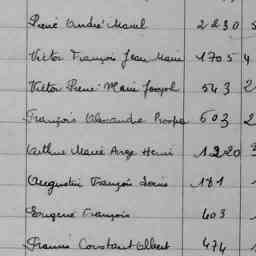 Pierre André Marcel 2230 5
Victor François Jean Marie 1705 4
Victor Pierre Marie Joseph 543 2
François Alexandre Prosper 603 2
Arthur Marie Ange Henri 1220 3
Augustin François Louis 181 1
Eugène François 403 1
Francis Constant Albert 474 1